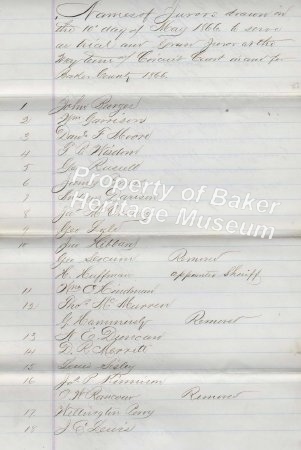 Names of Jurors drawn on
the 10th day of May 1866 to serve
as trial and Grand Juror at the
May term of Circuit Court in and for
Baker County 1866
1 John Burger
2 Wm Garrison
3 David F Moore
4 T C Wisdom
5 Geo Russell
6 James
7
8 Jas M
9 Geo Lyle
10 Jno Hibban
Geo Slocum Removed
H Huffman appointed Sheriff
11 Wm C Hindman
12 Thos McMurren
G Hammersly Removed
13 A E Duncan
14 D R Merritt
15 Louis Sisley
16 Jas P
O W Removed
17 Wellington Perry
18 J E Lewis
Property of Baker
Heritage Museum